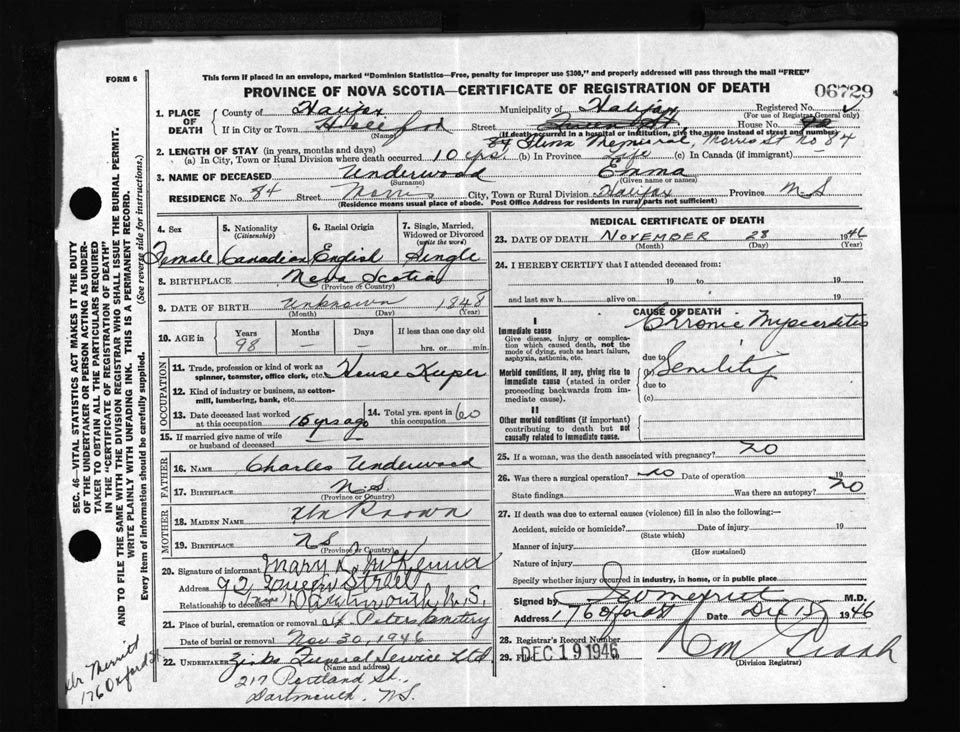 FORM 6
This form if placed in an envelope, marked "Dominion Statistics—Free, penalty for improper use $300," and properly addressed will pass through the mail "FREE"
PROVINCE OF NOVA SCOTIA—CERTIFICATE OF REGISTRATION OF DEATH
06729
1. PLACE OF DEATH
County of Halifax
Municipality of Halifax
Registered No.
(For use of Registrar General only)
If in City or Town Halifax
(Name)
Street Queen St House No.
(If death occurred in a hospital or institution, give the name instead of street and number)
84 Flinn Memorial, Morris St no 84
2. LENGTH OF STAY (in years, months and days)
(a) In City, Town or Rural Division where death occurred 10 yrs. (b) In Province Life (c) In Canada (if immigrant)
3. NAME OF DECEASED Underwood Emma
(Surname) (Given name or names)
RESIDENCE No. 84 Street Morris City, Town or Rural Division Halifax Province N.S
(Residence means usual place of abode. Post Office Address for residents in rural parts not sufficient)
4. Sex
Female
5. Nationality
(Citizenship)
Canadian
6. Racial Origin
English
7. Single, Married, Widowed or Divorced
(write the word)
Single
8. BIRTHPLACE Nova Scotia
(Province or Country)
9. DATE OF BIRTH Unknown 1848
(Month) (Day) (Year)
10. AGE in Years 98 Months — Days — If less than one day old
hrs. or min.
OCCUPATION
11. Trade, profession or kind of work as spinner, teamster, office clerk, etc. House Keeper
12. Kind of industry or business, as cotton-mill, lumbering, bank, etc.
13. Date deceased last worked at this occupation 15 yrs ago
14. Total yrs. spent in this occupation 60
15. If married give name of wife or husband of deceased —
FATHER
16. NAME Charles Underwood
17. BIRTHPLACE N.S
(Province or Country)
MOTHER
18. MAIDEN NAME Unknown
19. BIRTHPLACE NS
(Province or Country)
20. Signature of informant Mary L. McKenna
Address 92 Queen Street
Relationship to deceased (none) Dartmouth, N.S.
21. Place of burial, cremation or removal St. Peters Cemetery
Date of burial or removal Nov 30, 1946
22. UNDERTAKER Zinks Funeral Service Ltd
(Name and address)
217 Portland St.,
Dartmouth, N.S.
MEDICAL CERTIFICATE OF DEATH
23. DATE OF DEATH NOVEMBER 28 1946
(Month) (Day) (Year)
24. I HEREBY CERTIFY that I attended deceased from:
19 to 19
and last saw h alive on 19
CAUSE OF DEATH
I
Immediate cause
Give disease, injury or complication which caused death, not the mode of dying, such as heart failure, asphyxia, asthenia, etc.
Chronic Myocarditis
due to
Morbid conditions, if any, giving rise to immediate cause (stated in order proceeding backwards from immediate cause).
(b) Senility
due to
(c)
II
Other morbid conditions (if important) contributing to death but not causally related to immediate cause.
25. If a woman, was the death associated with pregnancy? no
26. Was there a surgical operation? no Date of operation 19
State findings Was there an autopsy? no
27. If death was due to external causes (violence) fill in also the following:—
Accident, suicide or homicide? Date of injury 19
(State which)
Manner of injury
(How sustained)
Nature of injury
Specify whether injury occurred in industry, in home, or in public place
Signed by Merritt M.D.
Address 176 Oxford Date Dec 13 1946
28. Registrar's Record Number
29. Filed DEC 19 1946
(Division Registrar)
SEC. 46—VITAL STATISTICS ACT MAKES IT THE DUTY OF THE UNDERTAKER OR PERSON ACTING AS UNDERTAKER TO OBTAIN ALL THE PARTICULARS REQUIRED IN THE "CERTIFICATE OF REGISTRATION OF DEATH" AND TO FILE THE SAME WITH THE DIVISION REGISTRAR WHO SHALL ISSUE THE BURIAL PERMIT.
WRITE PLAINLY WITH UNFADING INK. THIS IS A PERMANENT RECORD.
Every item of information should be carefully supplied. (See reverse side for instructions.)
Dr Merritt
176 Oxford St